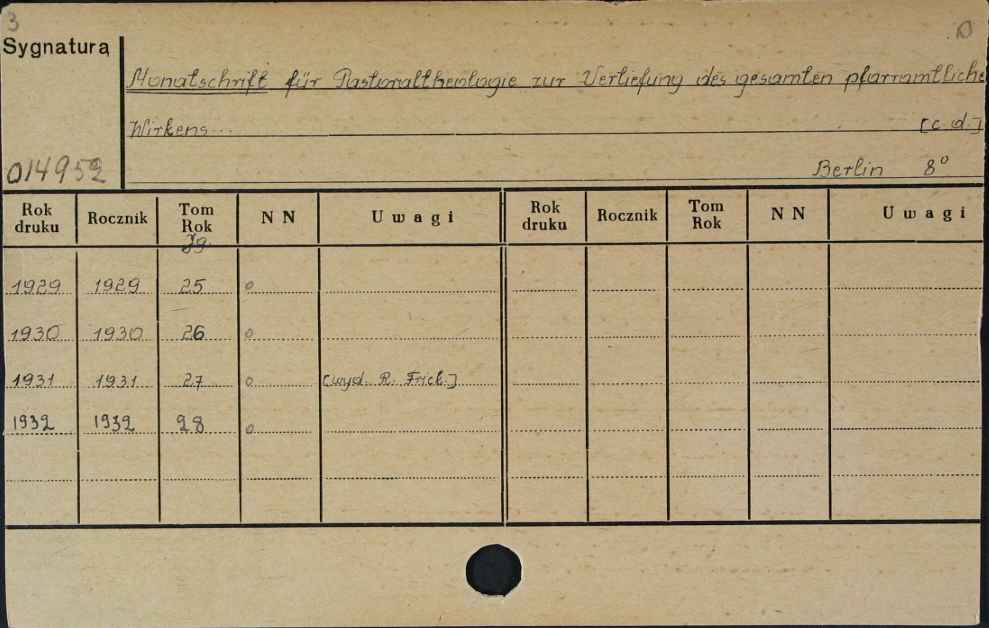 3
Sygnatura
Monatschrift für Pastoraltheologie zur Vertiefung des gesamten pfarramtliche
Wirkens... [c.d.]
014952 Berlin 8°
Rok druku Rocznik Tom Rok NN Uwagi Rok druku Rocznik Tom Rok NN Uwagi
Jg.
1929 1929 25 o
1930 1930 26 o
1931 1931 27 o [wyd. R. Frick.]
1932 1932 28 o